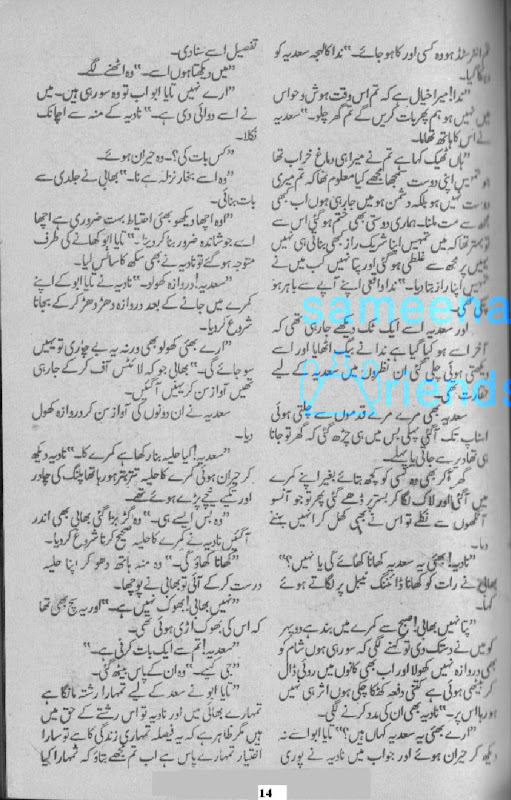 غیر انٹرسٹڈ ہو وہ کسی اور کا ہو جائے۔“ ندا کا لہجہ سعدیہ کو
”ندا! میرا خیال ہے کہ تم اس وقت ہوش و حواس
میں نہیں ہو ہم پھر بات کریں گے تم گھر چلو۔“ سعدیہ
نے اس کا ہاتھ تھاما۔
”ہاں ٹھیک کہا ہے تم نے میرا ہی دماغ خراب تھا
جو تمہیں اپنی دوست سمجھا مجھے کیا معلوم تھا کہ تم میری
دوست نہیں ہو بلکہ دشمن ہو میں جا رہی ہوں اب کبھی
مجھ سے مت ملنا۔ ہماری دوستی بھی ختم ہو گئی اس سے
تو بہتر تھا کہ میں تمہیں اپنا شریک راز بھی بناتی ہی نہیں
یہیں پر مجھ سے غلطی ہو گئی اور پتا نہیں کب میں نے
تمہیں اپنا راز بتا دیا۔“ ندا واقعی اپنے آپے سے باہر ہو
اور سعدیہ اسے ایک ٹک دیکھے جا رہی تھی کہ
آخر اسے ہو کیا گیا ہے ندا نے بیگ اٹھایا اور اسے
دیکھتی ہوئی چلی گئی ان نظروں میں سعدیہ کے لیے
حقارت تھی۔
سعدیہ بھی مرے مرے قدموں سے چلتی ہوئی
اسٹاپ تک آ گئی پہلی بس میں ہی چڑھ گئی کہ گھر تو جانا
ہی تھا دیر سے جاتی یا پہلے۔
گھر آ کر بھی وہ کسی کو کچھ بتائے بغیر اپنے کمرے
میں آ گئی اور لاک لگا کر بستر پر ڈھے گئی پھر تو جو آنسو
آنکھوں سے نکلے تو اس نے بھی کھل کر انہیں بہنے
دیا۔
”نادیہ! بھئی یہ سعدیہ کھانا کھائے گی یا نہیں؟“
بھابی نے رات کو کھانا ڈائننگ ٹیبل پر لگاتے ہوئے
کہا۔
”پتا نہیں بھابی! صبح سے کمرے میں بند ہے دوپہر
کو میں نے دستک دی تو کہنے لگی کہ سو رہی ہوں شام کو
بھی دروازہ نہیں کھولا اور اب بھی کانوں میں روئی ڈال
کر بیٹھی ہوئی ہے کتنی دفعہ کھٹکا چکی ہوں اثر ہی نہیں
ہو رہا اس پر۔“ نادیہ بھی ان کی مدد کرنے لگی۔
”ارے بھئی یہ سعدیہ کہاں ہیں؟“ تایا ابو اسے نہ
دیکھ کر حیران ہوئے اور جواب میں نادیہ نے پوری
تفصیل اسے سنا دی۔
”میں دیکھتا ہوں اسے۔“ وہ اٹھنے لگے۔
”ارے نہیں تایا ابو اب تو وہ سو رہی ہیں۔ میں
نے اسے دوائی دی ہے۔“ نادیہ کے منہ سے اچانک
نکلا۔
”کس بات کی؟۔“ وہ حیران ہوئے۔
”وہ اسے بخار نزلہ ہے نا۔“ بھابی نے جلدی سے
بات بنائی۔
”اوہ اچھا دیکھو بھئی احتیاط بہت ضروری ہے اچھا
اسے جوشاندہ ضرور بنا کر دینا۔“ تایا ابو کھانے کی طرف
متوجہ ہو گئے تو نادیہ نے بھی سکھ کا سانس لیا۔
”سعدیہ! دروازہ کھولو۔“ نادیہ نے تایا ابو کے اپنے
کمرے میں جانے کے بعد دروازہ دھڑ دھڑ کر کے بجانا
شروع کر دیا۔
”ارے بھئی کھولو بھی ورنہ یہ بے چاری تو یہیں
سو جائے گی۔“ بھابی جو کہ لائٹس آف کر کے جا رہی
تھیں آواز سن کر یہیں آ گئیں۔
سعدیہ نے ان دونوں کی آواز سن کر دروازہ کھول
دیا۔
”سعدیہ! کیا حلیہ بنا رکھا ہے کمرے کا۔“ نادیہ دیکھ
کر حیران ہوئی کمرے کا حلیہ تتر بتر ہو رہا تھا پلنگ کی چادر
اور تکیے نیچے پڑے ہوئے تھے۔
”وہ بس ایسے ہی۔“ وہ گڑبڑا گئی بھابی بھی اندر
آ گئیں نادیہ نے کمرے کا حلیہ صحیح کرنا شروع کر دیا۔
”کھانا کھاؤ گی۔“ وہ منہ ہاتھ دھو کر اپنا حلیہ
درست کر کے آئی تو بھابی نے پوچھا۔
”نہیں بھابی! بھوک نہیں ہے۔“ اور یہ سچ بھی تھا
کہ اس کی بھوک اڑی ہوئی تھی۔
”سعدیہ! تم سے ایک بات کرنی ہے۔“
”جی کہیے۔“ وہ ان کے پاس بیٹھ گئی۔
”تایا ابو نے سعد کے لیے تمہارا رشتہ مانگا ہے
تمہارے بھائی میں اور نادیہ تو اس رشتے کے حق میں
ہیں مگر ظاہر ہے کہ یہ فیصلہ تمہاری زندگی کا ہے تو سارا
اختیار تمہارے پاس ہے اب تم مجھے بتاؤ کہ تمہارا کیا
sameena
friends
14